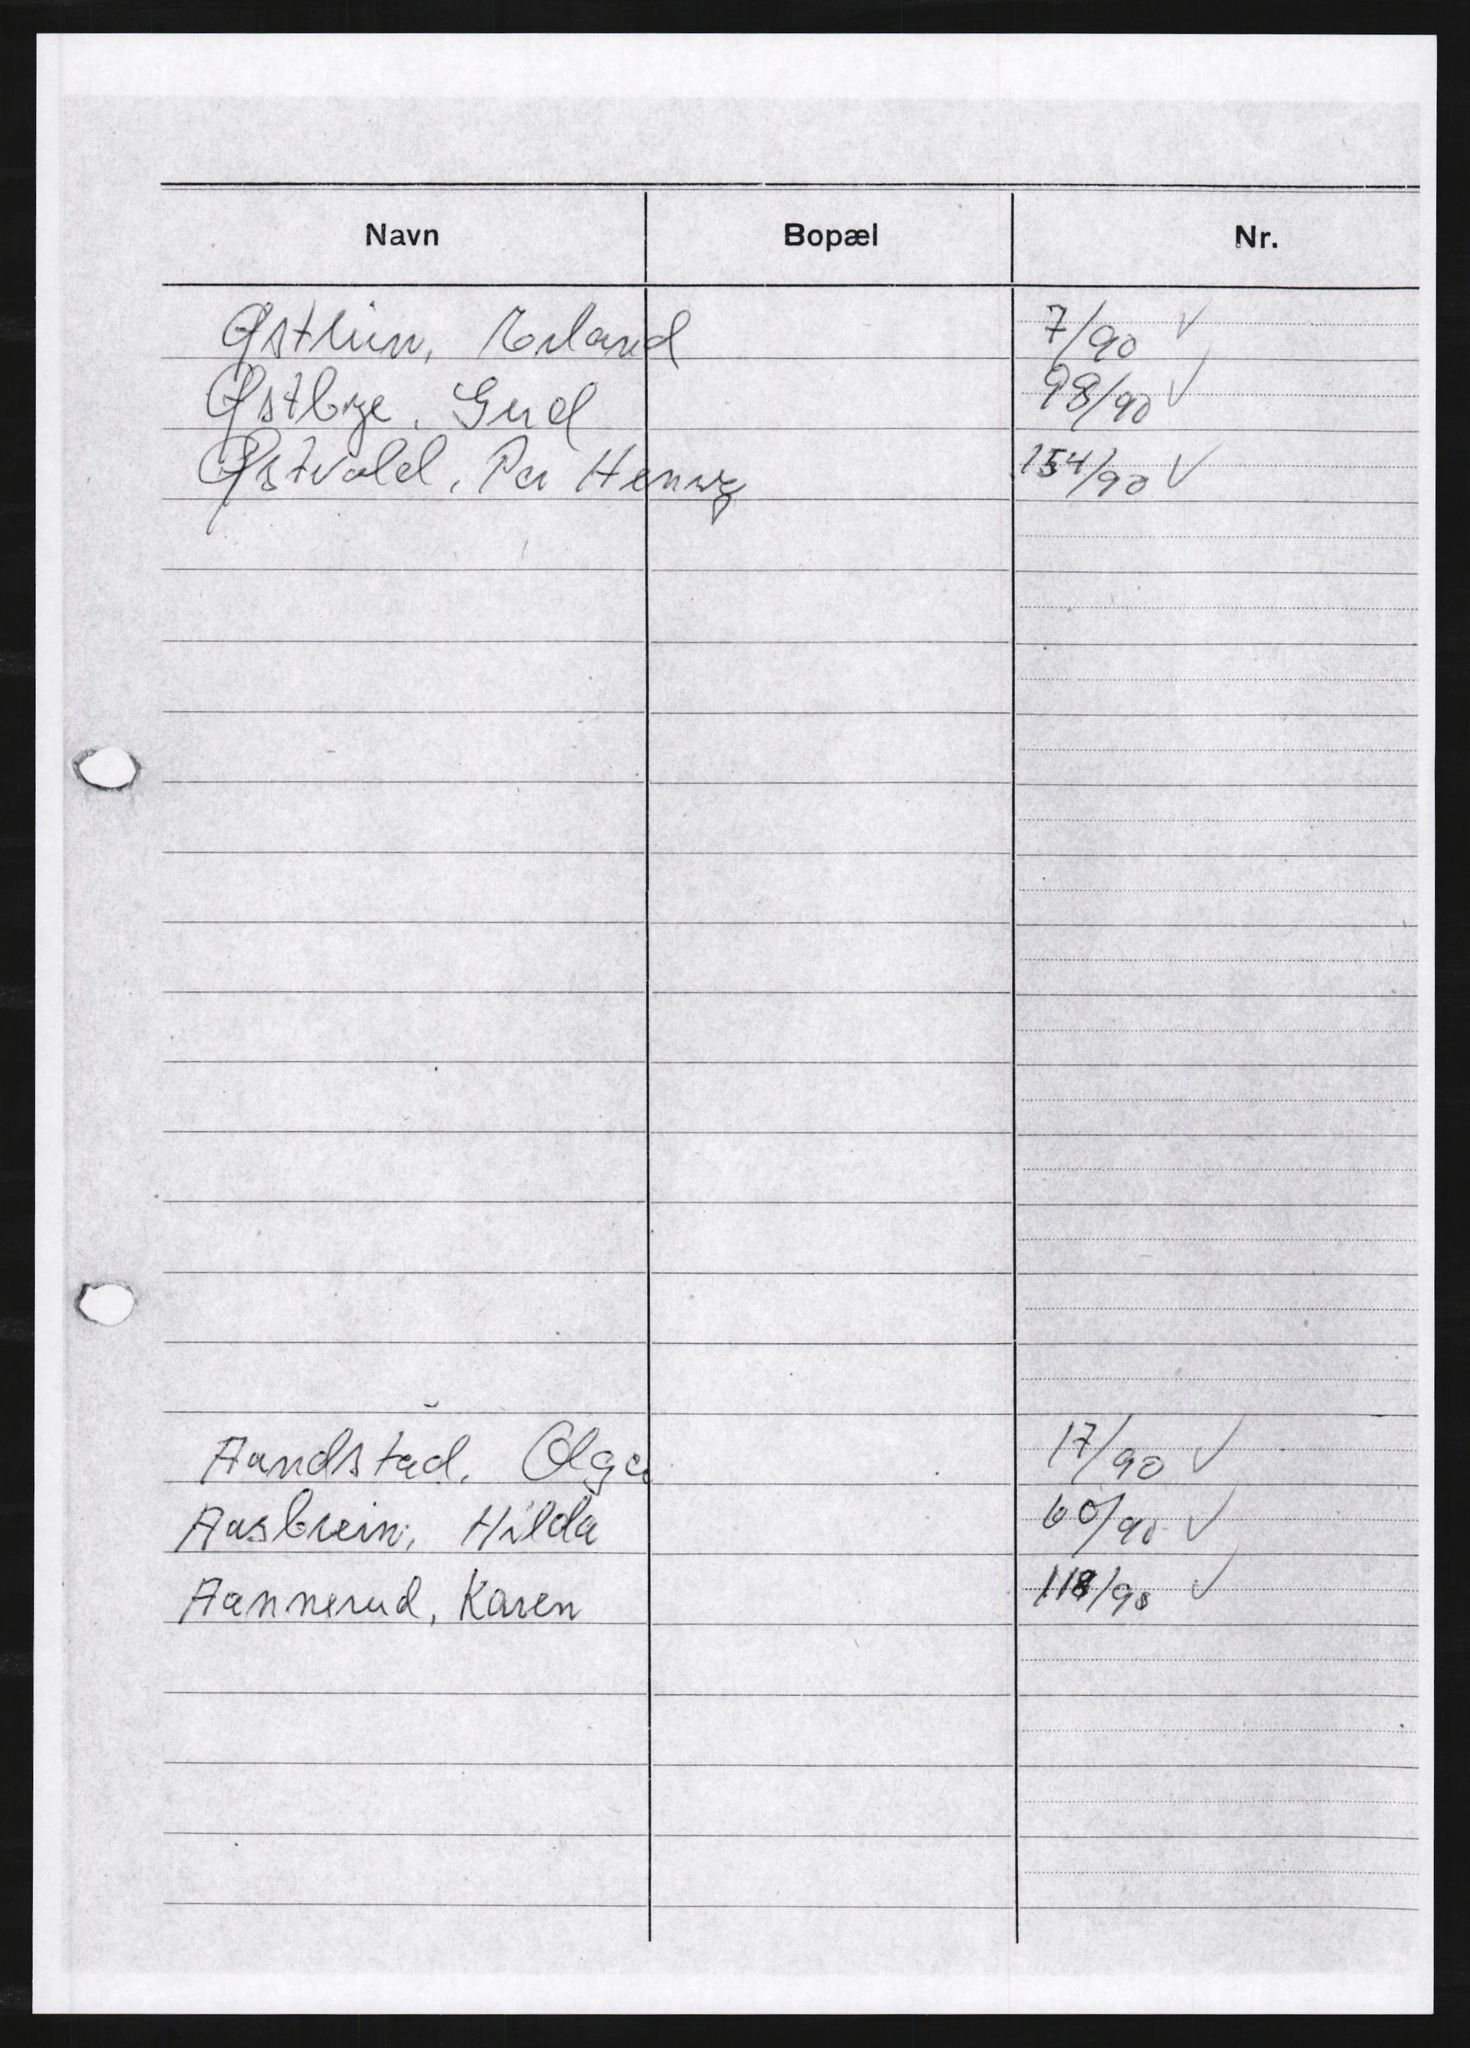 Navn Bopæl Nr.
Østlien, Erland 7/90 ✓
Østbye, Gerd 98/90 ✓
Østvold, Per Henry 154/90 ✓
Aandstad, Olga 17/90 ✓
Aasbrein, Hilda 60/90 ✓
Aannerud, Karen 118/90 ✓